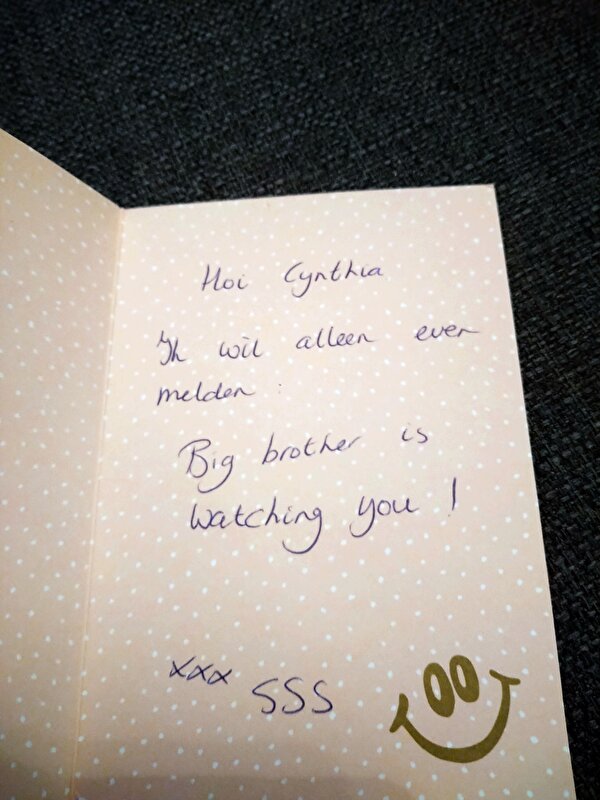 Hoi Cynthia
Ik wil alleen even
melden :
Big brother is
watching you !
xxx SSS